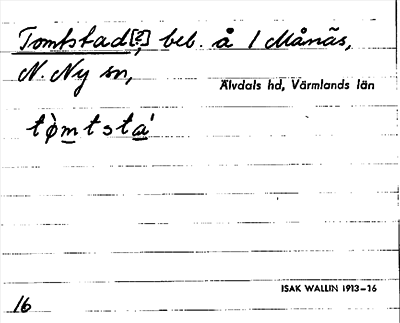 Tomtstad[?], beb. å 1 Månäs,
N. Ny sn,
Älvdals hd, Värmlands län
tò̀mtstá
ISAK WALLIN 1913–16
16